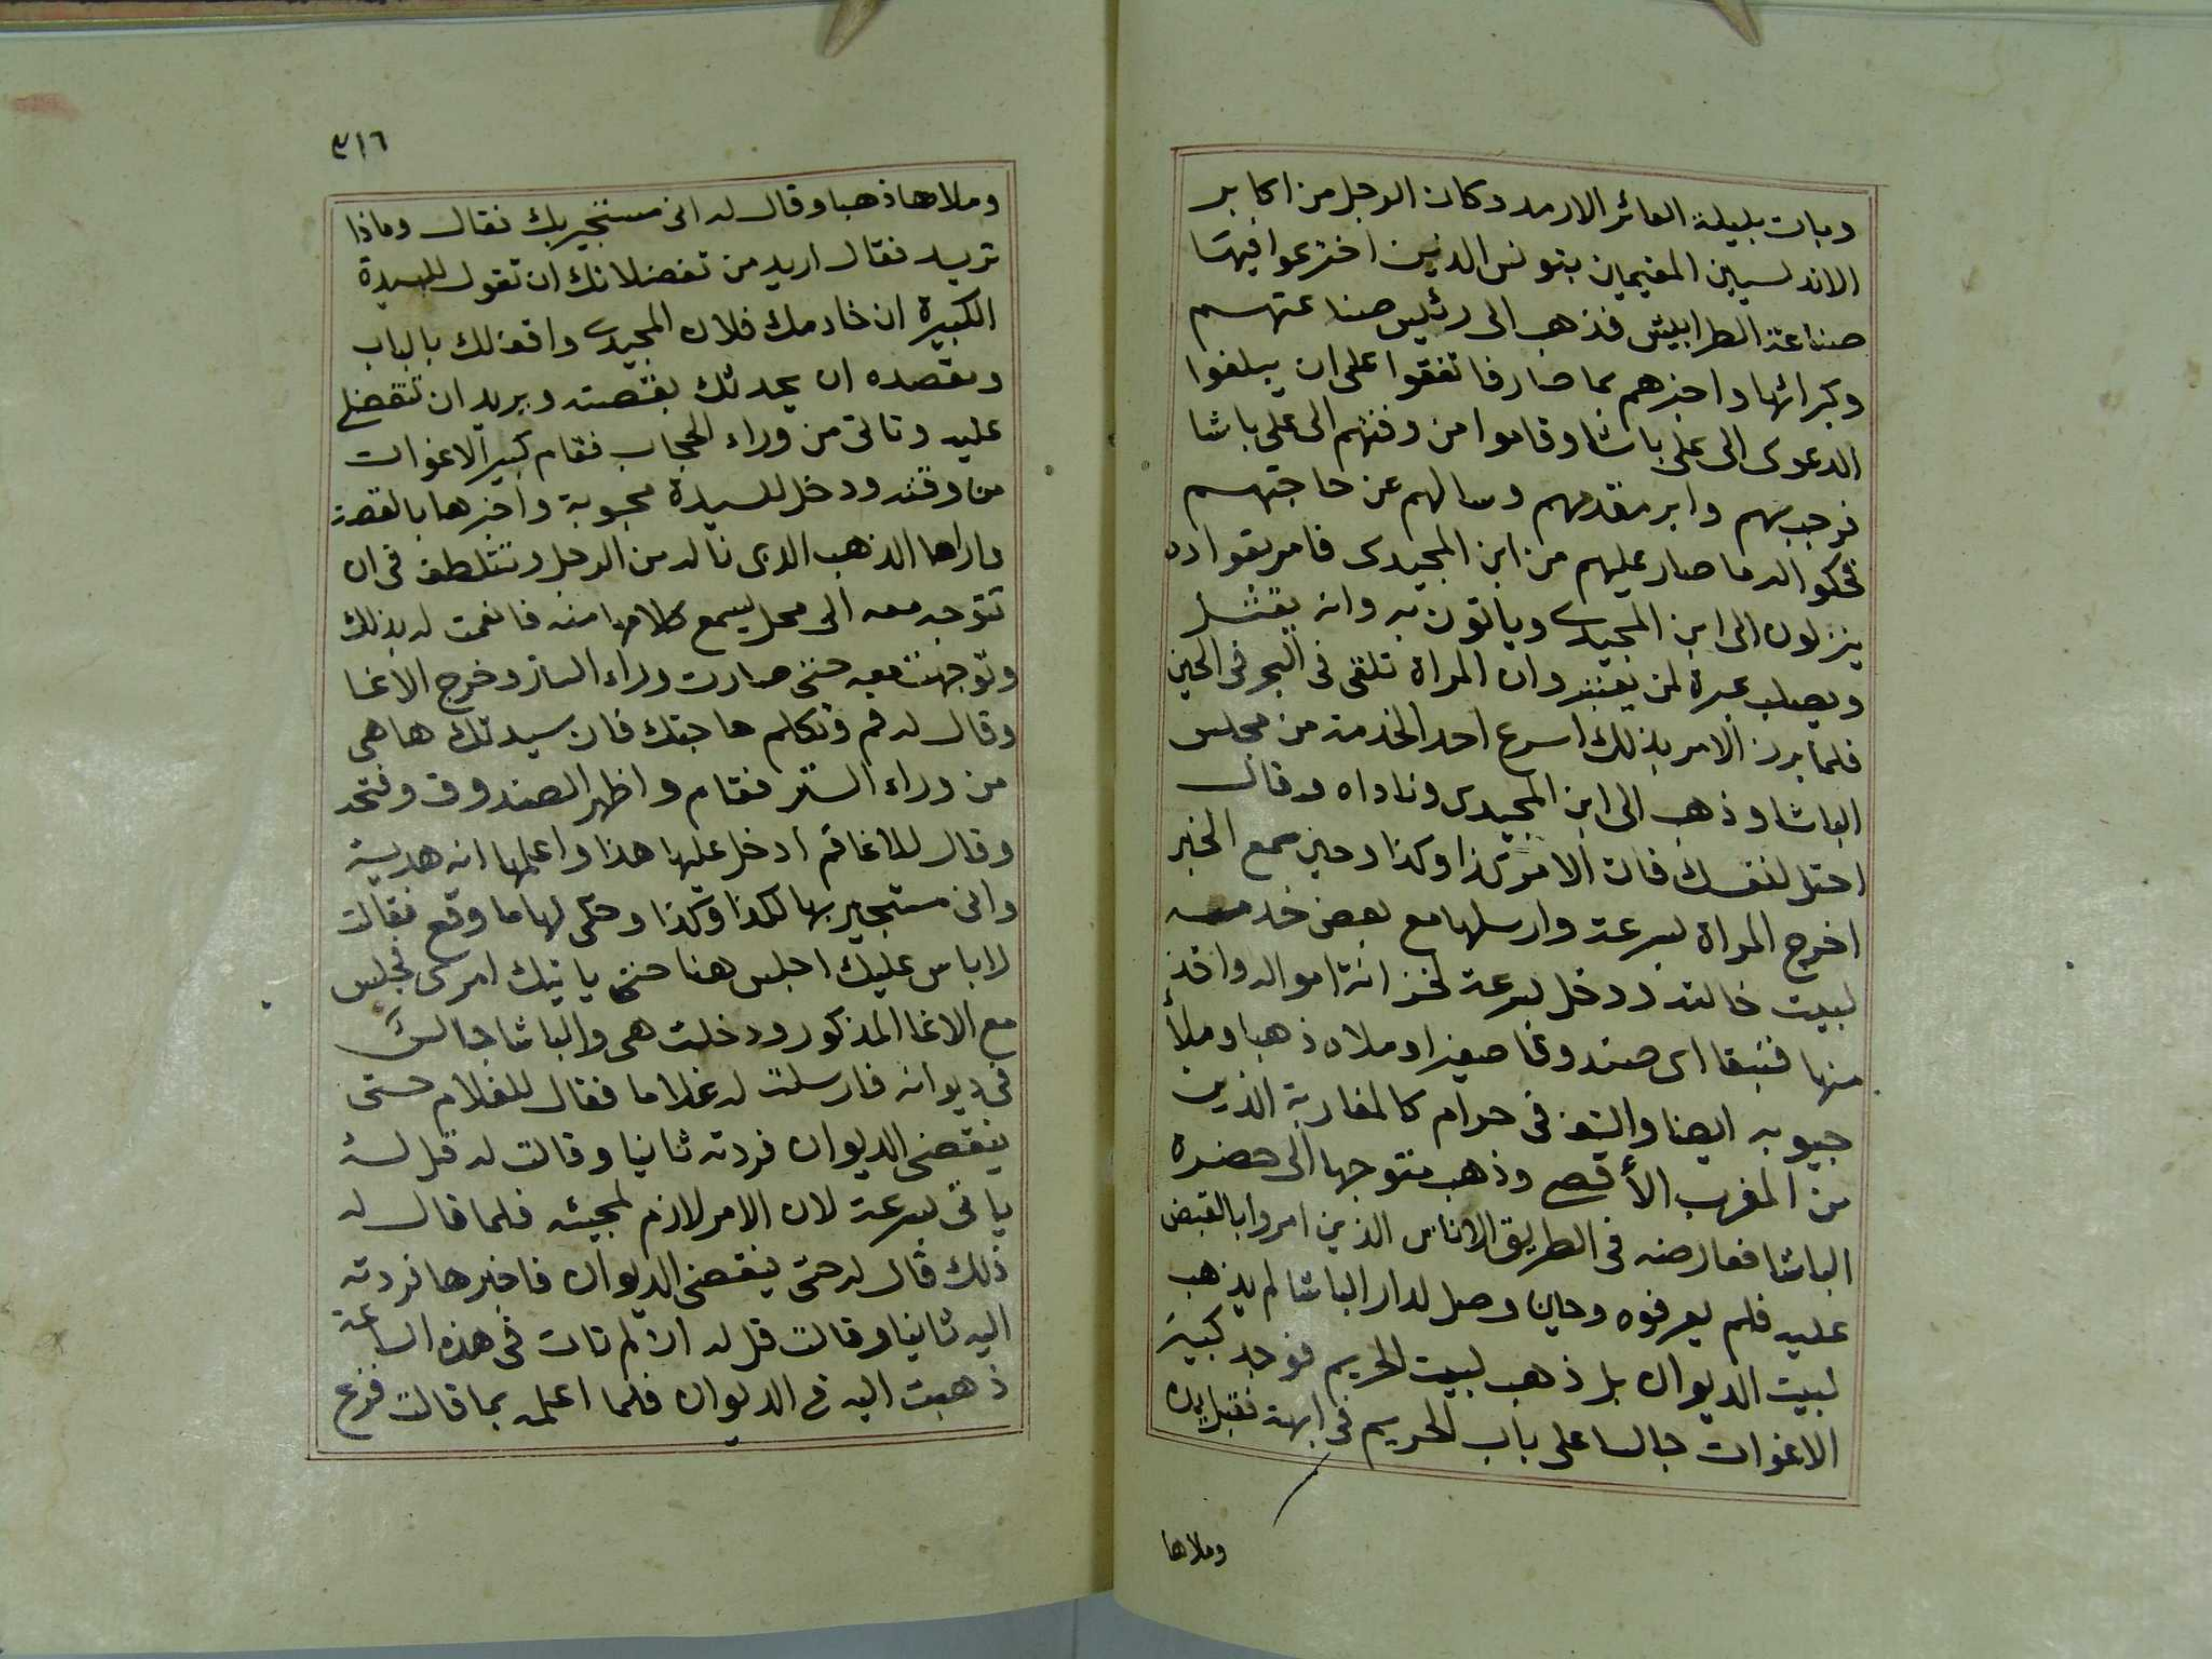 وبات بليلة العائر الارمد وكان الرجل من اكابر
الاندلسيين المقيمين بتونس الذين اخترعوا فيها
صناعة الطرابيش فذهب الى رئيس صناعتهم
وكبرائها واخبرهم بما صار فاتفقوا على ان يبلغوا
الدعوى الى على باشا وقاموا من وقتهم الى على باشا
فرحب بهم وابر مقدمهم وسالهم عن حاجتهم
فحكوا له ما صار عليهم من ابن المجيدى فامر بقواده
ينزلون الى ابن المجيدى وياتون به وانه يقتل
ويصلب عبرة لمن يعتبر وان المراة تلقى فى البحر فى الحين
فلما برز الامر بذلك اسرع احد الخدمة من مجلس
الباشا وذهب الى ابن المجيدى وناداه وقال
احتل لنفسك فان الامر كذا وكذا وحين سمع الخبر
اخرج المراة بسرعة وارسلها مع بعض خدمه
لبيت خالته ودخل بسرعة لخزانة امواله واخذ
منها فنيقا اى صندوقا صغيرا وملاه ذهبا وملأ
جيوبه ايضا والتف فى حرام كالمغاربة الذين
من المغرب الأقصى وذهب متوجها الى حضرة
الباشا فعارضه فى الطريق الاناس الذين امروا بالقبض
عليه فلم يعرفوه وحين وصل لدار الباشا لم يذهب
لبيت الديوان بل ذهب لبيت الحريم فوجد كبير
الاغوات جالسا على باب الحريم فى ابهة فقبل يده
وملاها
٣١٦
وملاها ذهبا وقال له انى مستجير بك فقال وماذا
تريد فقال اريد من تفضلاتك ان تقول للسيدة
الكبيرة ان خادمك فلان المجيدى واقف لك بالباب
وبقصده ان يحدثك بقصته ويريد ان تتفضلى
عليه وتاتى من وراء الحجاب فقام كبير الاغوات
من وقته ودخل للسيدة محبوبة واخبرها بالقصة
واراها الذهب الذى ناله من الرجل وتتلطف فى ان
تتوجه معه الى محل يسمع كلامها منه فانعمت له بذلك
وتوجهت معه حتى صارت وراء الساتر وخرج الاغا
وقال له قم وتكلم حاجتك فان سيدتك هاهى
من وراء الستر فقام واظهر الصندوق وفتحه
وقال للاغا قم ادخل عليها هذا واعلمها انه هدية
وانى مستجير بها لكذا وكذا وحكى لها ما وقع فقالت
لا باس عليك اجلس هنا حتى ياتيك امرى فجلس
مع الاغا المذكور ودخلت هى والباشا جالس
فى ديوانه فارسلت له غلاما فقال للغلام حتى
ينقضى الديوان فردته ثانيا وقالت له قل له
ياتى بسرعة لان الامر لازم لمجيئه فلما قال له
ذلك قال له حتى ينقضى الديوان فاخبرها فردته
اليه ثانيا وقالت قل له ان لم تات فى هذه الساعة
ذهبت اليه فى الديوان فلما اعلمه بما قالت فزع